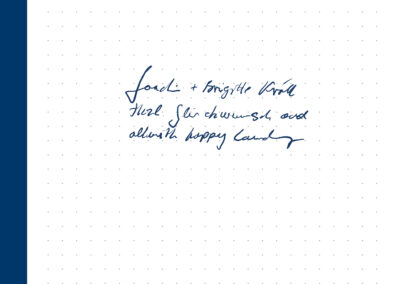 Joachi + Brigitte Kröll
Herzl. Glückwunsch und
allzeith happy Landing